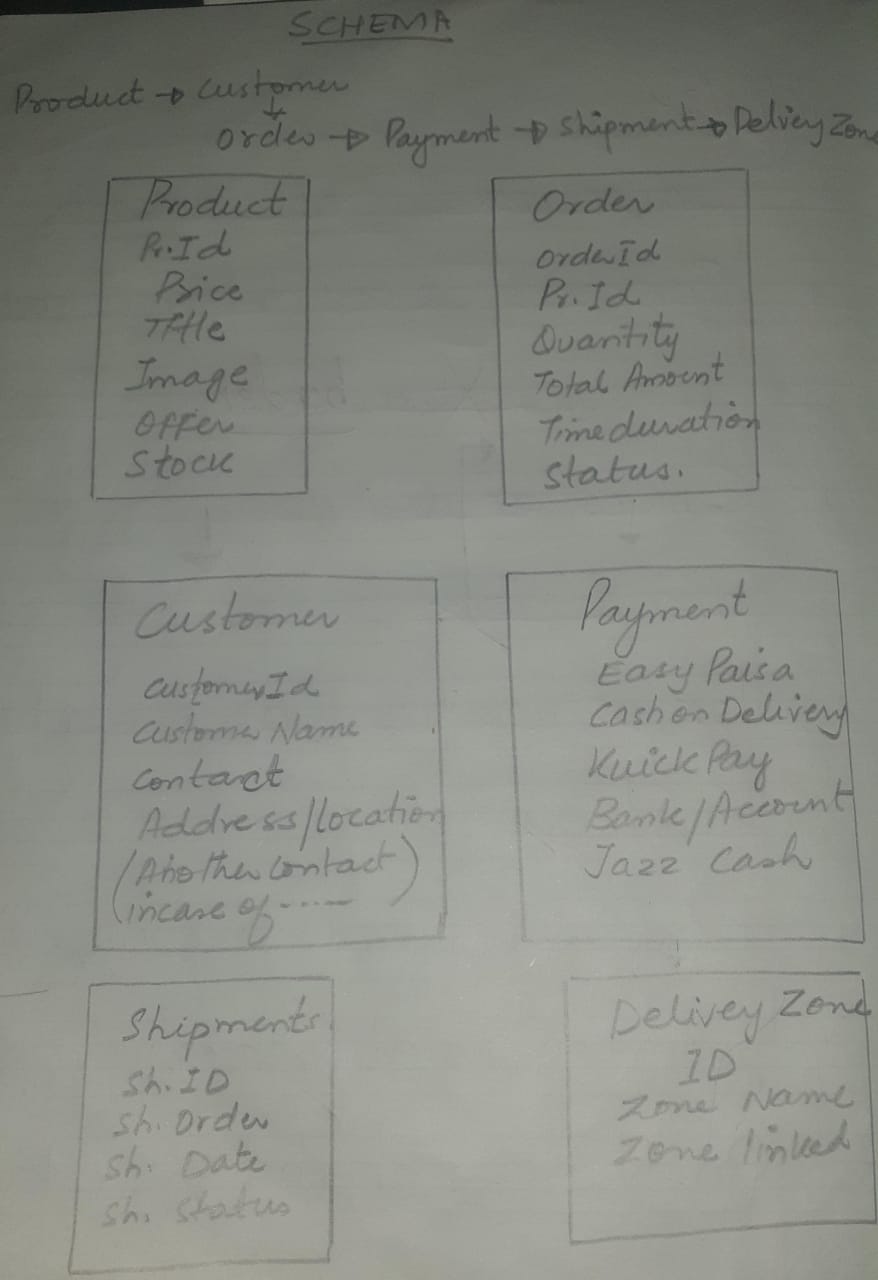 SCHEMA
Product → Customer
↓
Order → Payment → Shipment → Delivey Zone
Product
Pr. Id
Price
Title
Image
Offer
Stock
Order
Order Id
Pr. Id
Quantity
Total Amount
Time duration
Status.
Customer
Customer Id
Customer Name
Contact
Address/location
(Another contact)
(incase of -----
Payment
Easy Paisa
Cash on Delivery
Kuick Pay
Bank/Account
Jazz Cash
Shipments
Sh. ID
Sh. Order
Sh. Date
Sh. Status
Delivey Zone
ID
Zone Name
Zone linked